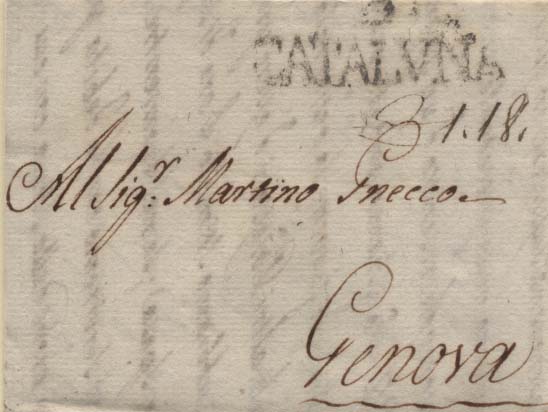 CATALVÑA
1.18.
Al Sig.r Martino Gnecco
Genova